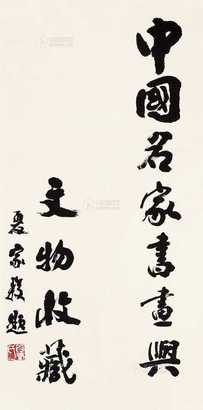 中國名家書畫與
文物收藏
夏家駿題